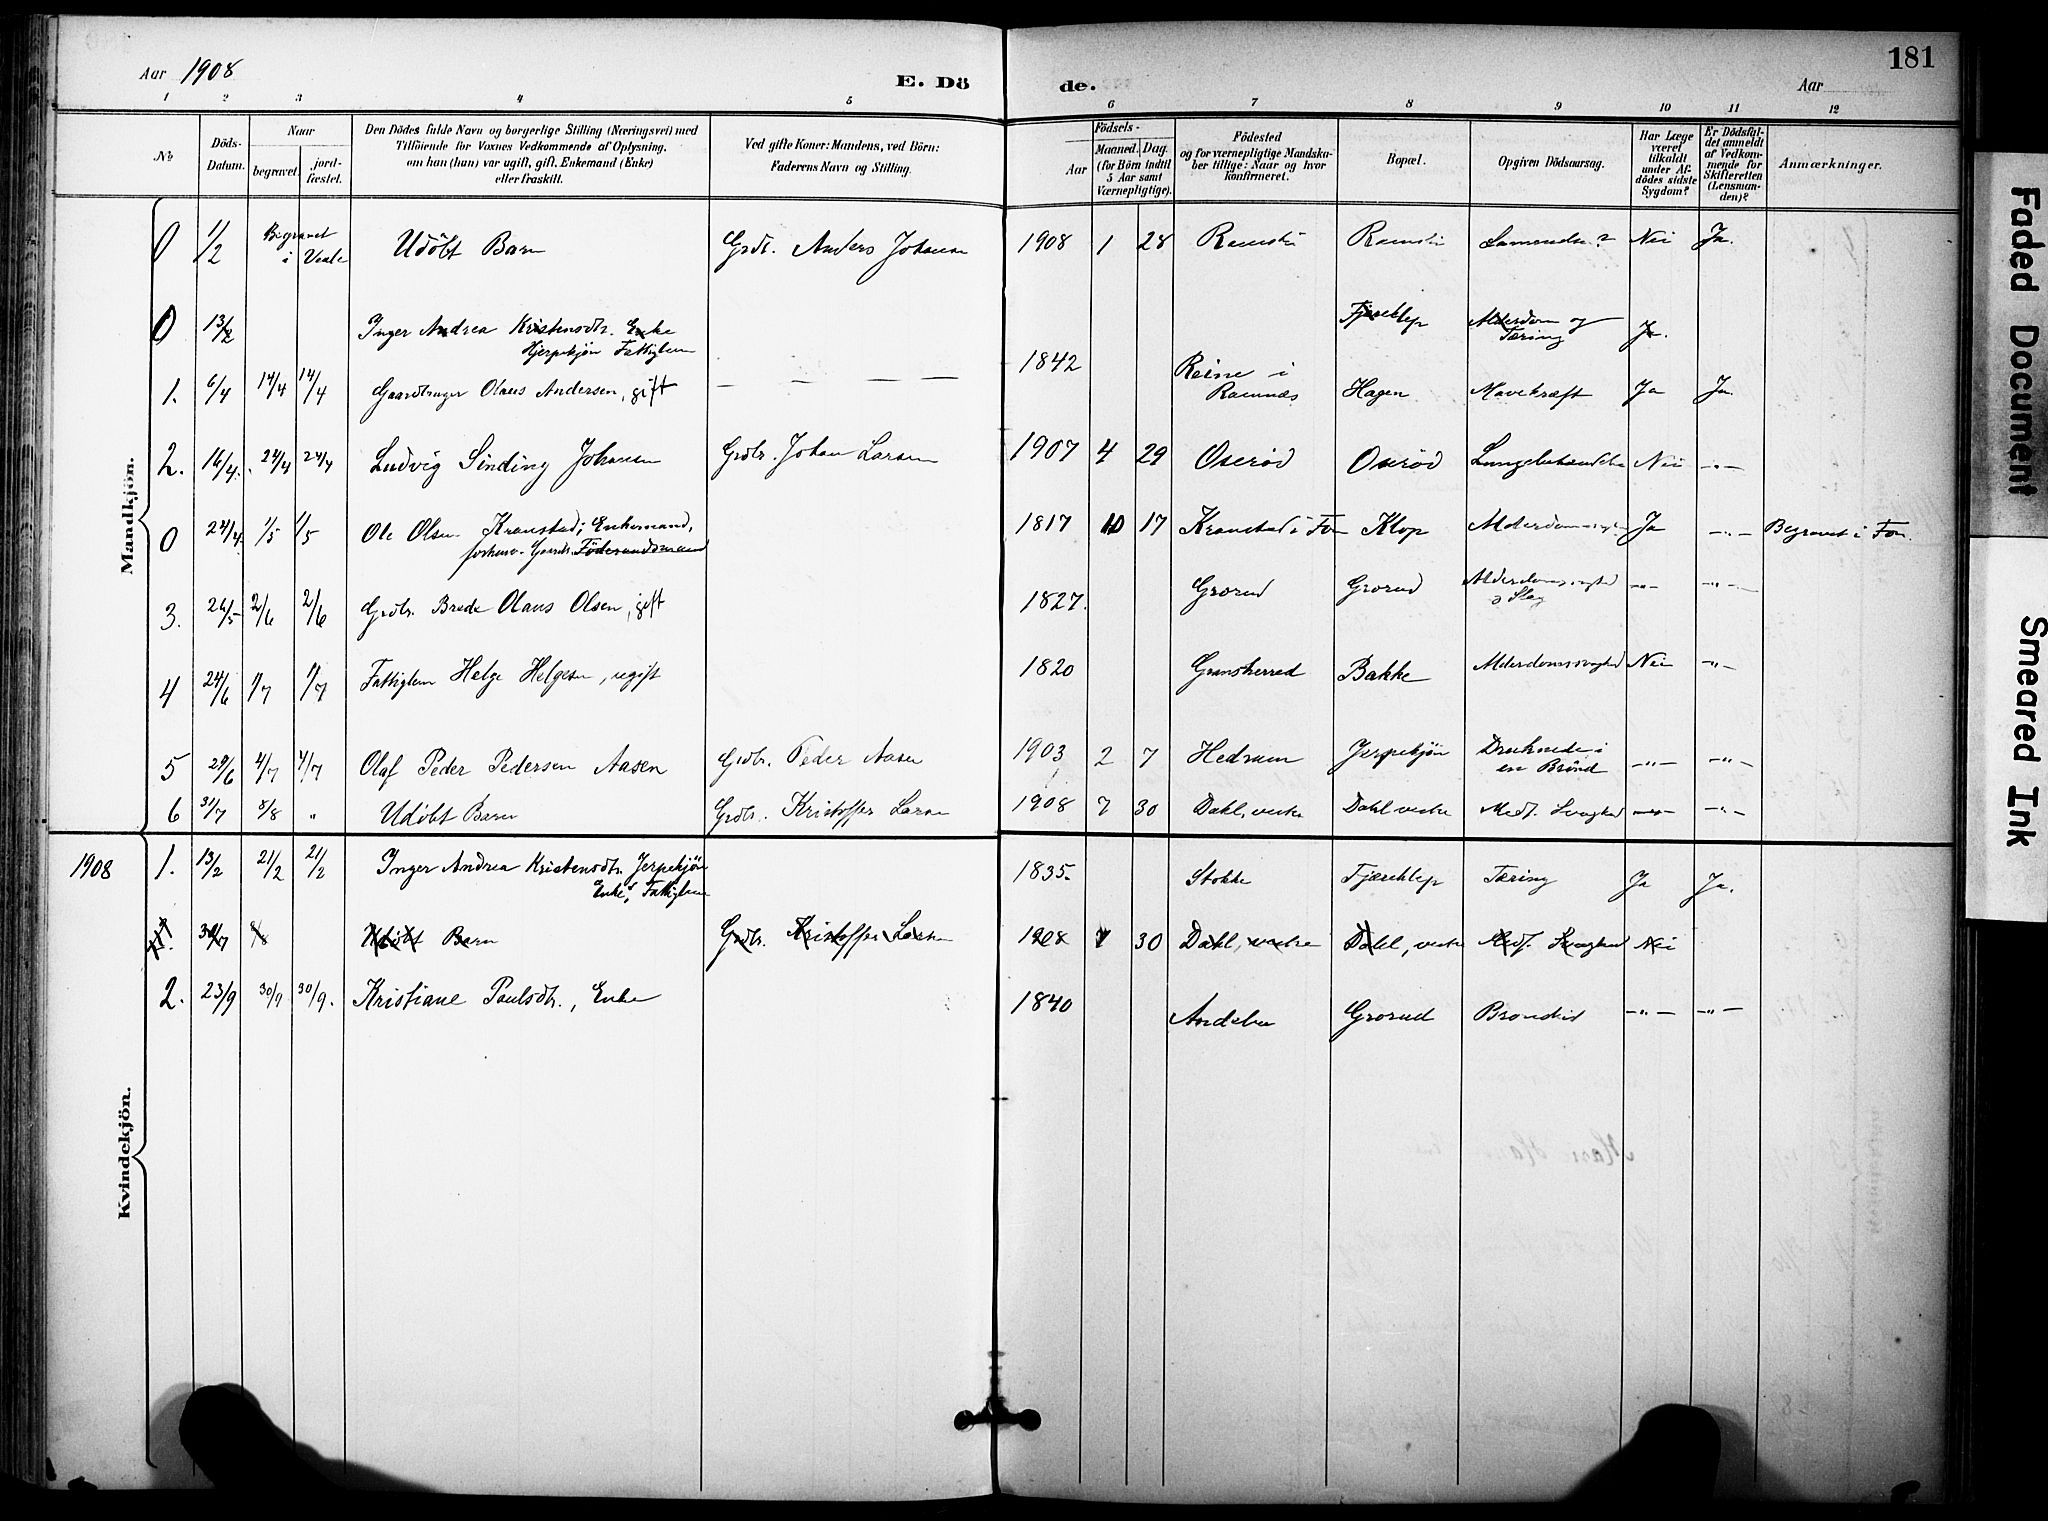 Aar 1908
E. Dö de.
Aar
181
1 2 3 4 5 6 7 8 9 10 11 12
No
Döds-Datum.
Naar
begravet.
jord-fæstet.
Den Dödes fulde Navn og borgerlige Stilling (Næringsvei) med
Tilföiende for Voxnes Vedkommende af Oplysning,
om han (hun) var ugift, gift, Enkemand (Enke)
eller fraskilt.
Ved gifte Koner: Mandens, ved Börn:
Faderens Navn og Stilling.
Födsels-
Aar
Maaned. Dag
(for Börn indtil
5 Aar samt
Værnepligtige).
Födested
og for værnepligtige Mandska-
ber tillige: Naar og hvor
konfirmeret.
Bopæl.
Opgiven Dödsaarsag.
Har Læge
været
tilkaldt
under Af-
dödes sidste
Sygdom?
Er Dödsfal-
det anmeldt
af Vedkom-
mende for
Skifteretten
(Lensman-
den)?
Anmærkninger.
Mandkjön.
0 1/2 Begravet i Udöbt Barn Grdbr. Anders Johansen 1908 1 28 Nei Ja.
0 13/2 Inger Andrea Kristensdtr. Enke
Hjerpekjøn Fattiglem Fjæreklep Alderdom og
Tæring Ja.
1. 6/4 14/4 14/4 Gaardbruger Olaus Andersen, gift — — — — 1842 Reine i
Ramnæs Hagen Mavekræft Ja Ja.
2. 16/4 24/4 24/4 Ludvig Sinding Johansen Grdbr. Johan Larsen 1907 4 29 Oserød Oserød Nei -"-
0 24/4 1/5 1/5 Ole Olsen Kranstad; Enkemand,
forhenv. Gaardbr. Föderaadsmand 1817 10 17 Kranstad i Fon Klop Alderdomssvaghed Ja -"- Begravet i Fon.
3. 26/5 2/6 2/6 Grdbr. Brede Olaus Olsen, gift 1827. Grorud Grorud Alderdomssvaghed
o Slag -"- -"-
4 24/6 1/7 1/7 Fattiglem Helge Helgesen, ugift 1820 Gransherred Bakke Alderdomssvaghed Nei -"-
5 29/6 4/7 4/7 Olaf Peder Pedersen Aasen Grdbr. Peder Aasen 1903 2 7 Hedrum Jerpekjøn Druknede i
en Brønd -"- -"-
6 31/7 8/8 " Udöbt Barn Grdbr. Kristoffer Larsen 1908 7 30 Dahl, vestre Dahl vestre Medf. Svaghed -"- -"-
Kvindekjön.
1908 1. 13/2 21/2 21/2 Inger Andrea Kristensdtr. Jerpekjøn
Enke, Fattiglem 1835. Stokke Fjæreklep Tæring Ja Ja.
30/7 8/8 Udöbt Barn Grdbr. Kristoffer Larsen 1908 7 30 Dahl, vestre Dahl, vestre Medf. Svaghed Nei
2. 23/9 30/9 30/9. Kristiane Paulsdtr., Enke 1840 Andebu Grorud -"- -"-
Faded Document
Smeared Ink